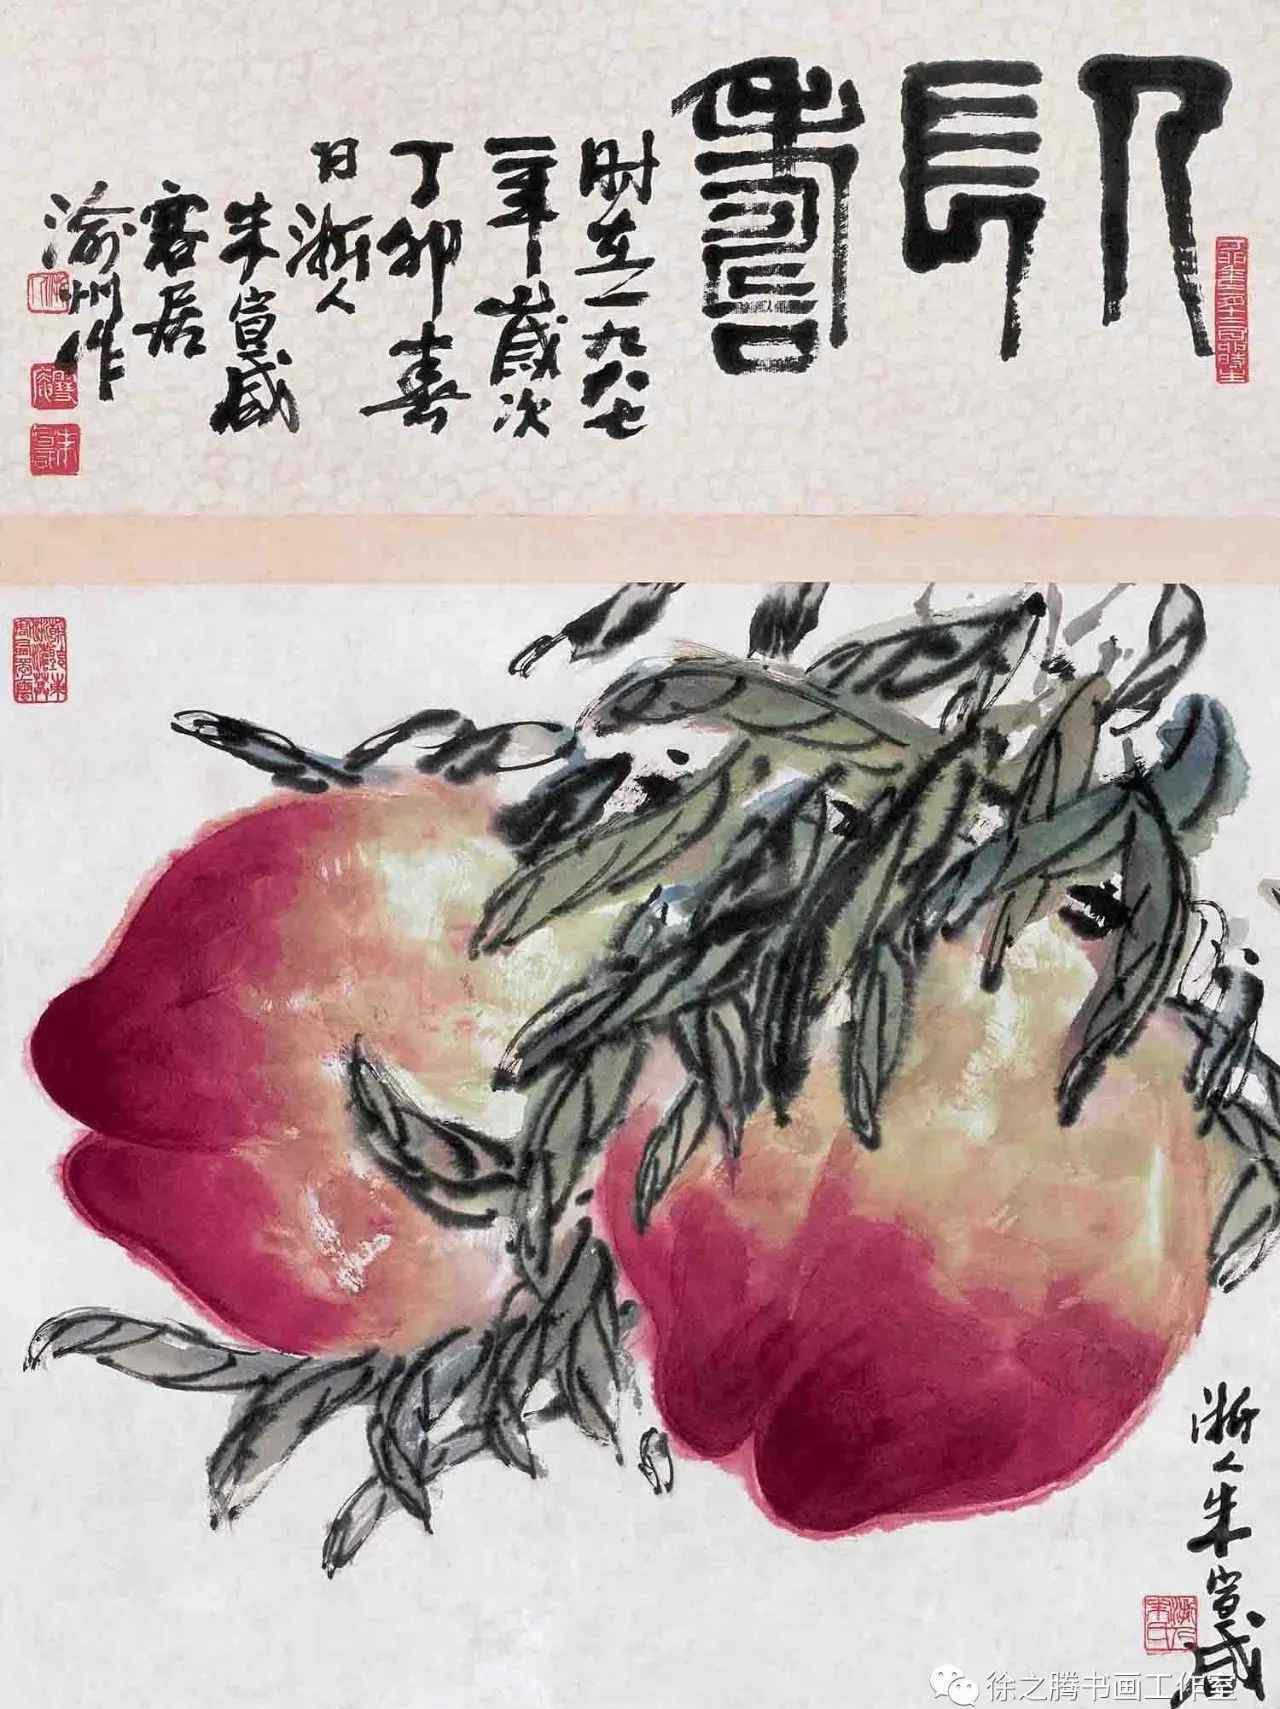 人長壽
时在一九八七
年歲次
丁卯春
日浙人
朱宣咸
客居
渝州作
浙人朱宣咸
徐之腾书画工作室